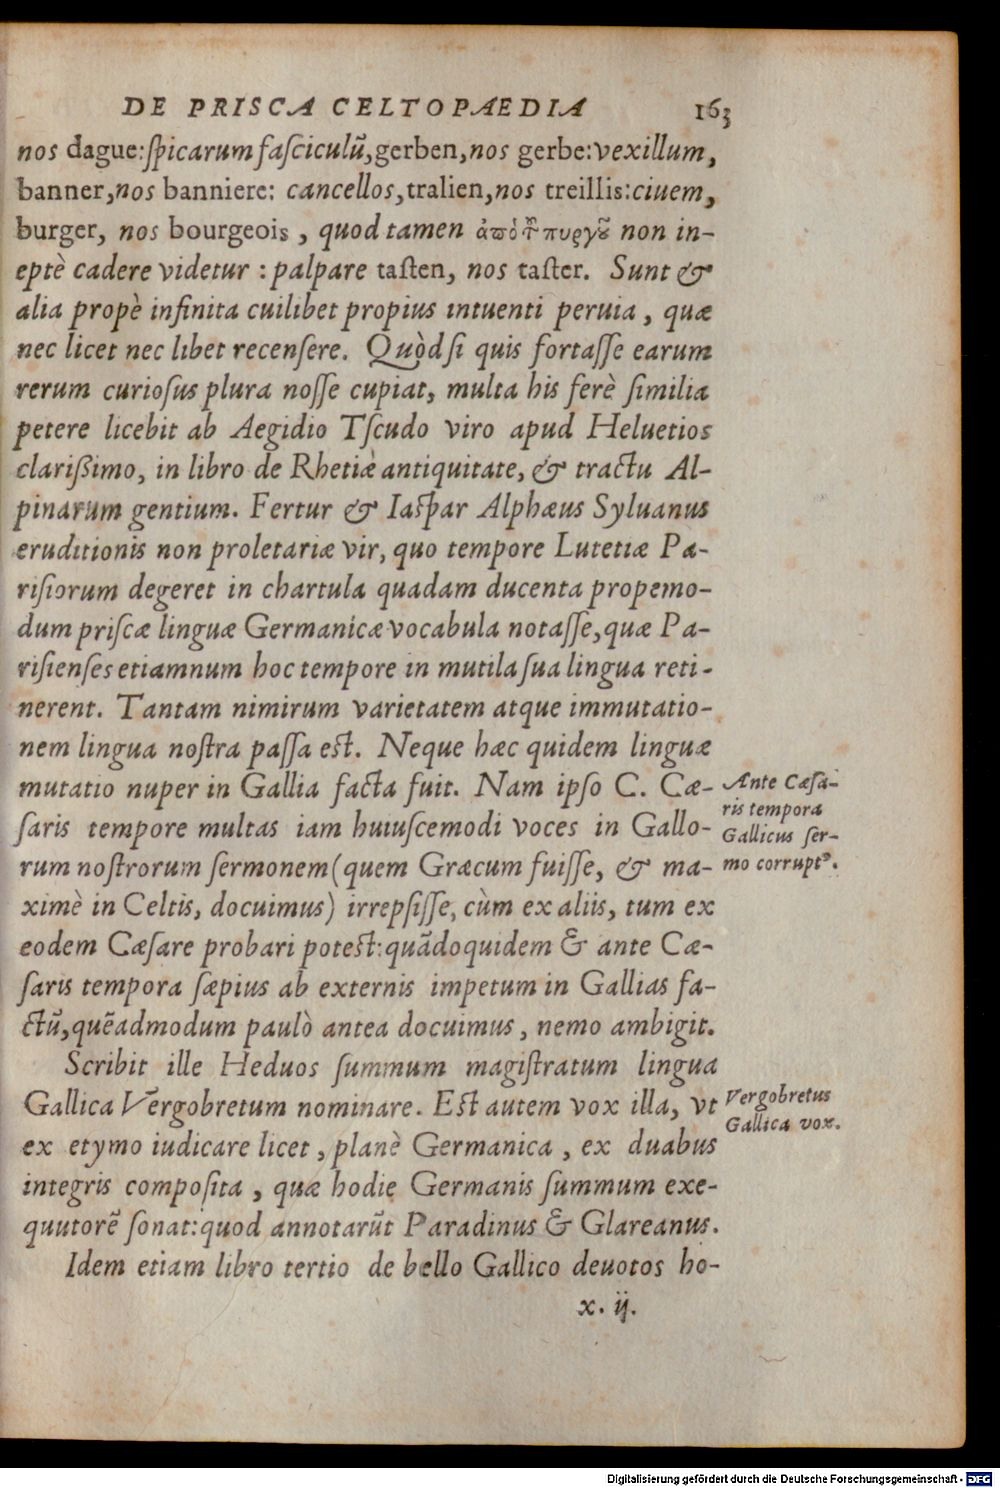 DE PRISCA CELTOPAEDIA 163
nos dague:ſpicarum faſciculũ,gerben,nos gerbe:vexillum,
banner,nos banniere: cancellos,tralien,nos treillis:ciuem,
burger, nos bourgeois, quod tamen non in-
eptè cadere videtur : palpare taſten, nos taſter. Sunt &
alia propè infinita cuilibet propius intuenti peruia, quæ
nec licet nec libet recenſere. Quòd ſi quis fortaſſe earum
rerum curioſus plura noſſe cupiat, multa his ferè ſimilia
petere licebit ab Aegidio Tſcudo viro apud Heluetios
clarißimo, in libro de Rhetiæ antiquitate, & tractu Al-
pinarum gentium. Fertur & Iaſpar Alphæus Syluanus
eruditionis non proletariæ vir, quo tempore Lutetiæ Pa-
riſiorum degeret in chartula quadam ducenta propemo-
dum priſcæ linguæ Germanicæ vocabula notaſſe,quæ Pa-
riſienſes etiamnum hoc tempore in mutila ſua lingua reti-
nerent. Tantam nimirum varietatem atque immutatio-
nem lingua noſtra paſſa eſt. Neque hæc quidem linguæ
mutatio nuper in Gallia facta fuit. Nam ipſo C. Cæ-
ſaris tempore multas iam huiuſcemodi voces in Gallo-
rum noſtrorum ſermonem (quem Græcum fuiſſe, & ma-
ximè in Celtis, docuimus) irrepſiſſe, cùm ex aliis, tum ex
eodem Cæſare probari poteſt:quãdoquidem & ante Cæ-
ſaris tempora ſæpius ab externis impetum in Gallias fa-
ctũ,quẽadmodum paulò antea docuimus, nemo ambigit.
Ante Cæſa-
ris tempora
Gallicus ſer-
mo corruptꝰ.
Scribit ille Heduos ſummum magiſtratum lingua
Gallica Vergobretum nominare. Eſt autem vox illa, vt
ex etymo iudicare licet, planè Germanica, ex duabus
integris compoſita, quæ hodie Germanis ſummum exe-
quutorẽ ſonat:quod annotarũt Paradinus & Glareanus.
Vergobretus
Gallica vox.
Idem etiam libro tertio de bello Gallico deuotos ho-
x. ij.
Digitalisierung gefördert durch die Deutsche Forschungsgemeinschaft - DFG